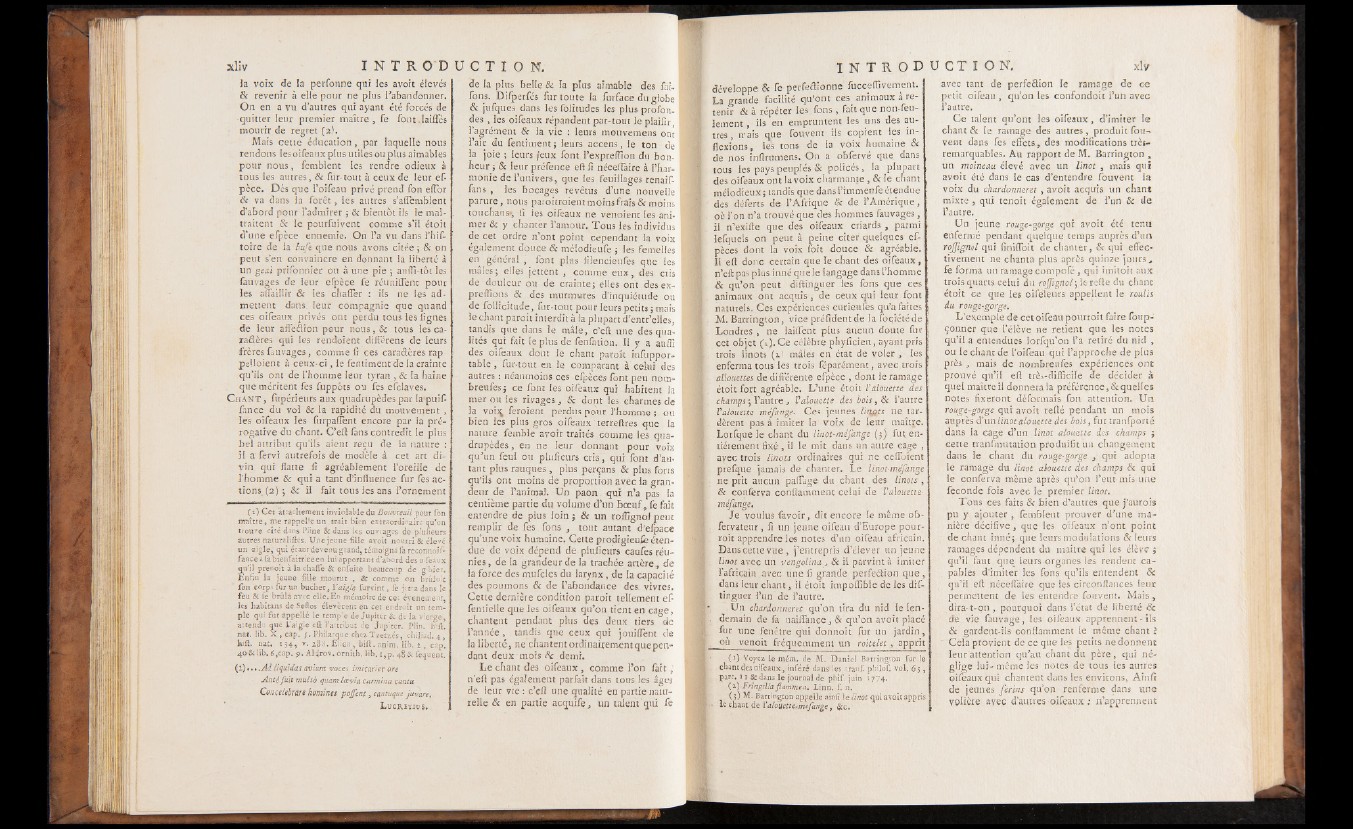 xliv INTRODUCTION.
la voix de la perſonne qui les avoit élevés
& revenir à elle pour ne plus l'abandonner.
On en a vu d'autres qui ayant été forcés de
quitter leur premier maître, ſe ſont laiſſés
mourir de regret (2).
Mais cette éducation, par laquelle nous
rendons les oiſeaux plus utiles ou plus aimables
pour nous, ſemblent les rendre odieux à
tous les autres, & ſur-tout à ceux de leur eſ-
pèce. Dès que l'oiſeau privé prend ſon eſſor
& va dans la forêt, les autres s'aſſemblent
d'abord pour l'admirer ; & bientôt ils le mal-
traitent & le pourſuivent comme s'il étoit
d'une eſpèce ennemie. On l'a vu dans l'hiſ-
toire de la buſe que nous avons citée ; & on
peut s'en convaincre en donnant la liberté à
un geai priſonnier ou à une pie ; auſſi-tôt les
ſauvages de leur eſpèce ſe réuniſſent pour
les aſſaillir & les chaſſer : ils ne les ad-
mettent dans leur compagnie que quand
ces oiſeaux privés ont perdu tous les ſignes
de leur affection pour nous, & tous les ca-
ractères qui les rendoient différens de leurs
frères ſauvages, comme ſi ces caractères rap-
pelloient à ceux-ci, le ſentiment de la crainte
qu'ils ont de l'homme leur tyran, & la haine
que méritent ſes ſuppôts ou ſes eſclaves.
CHANT, ſupérieurs aux quadrupèdes par la puiſ-
ſance du vol & la rapidité du mouvement,
les oiſeaux les ſurpaſſent encore par la pré-
rogative du chant. C'eſt ſans contredit le plus
bel attribut qu'ils aient reçu de la nature :
il a ſervi autrefois de modèle à cet art di-
vin qui flatte ſi agréablement l'oreille de
l'homme & qui a tant d'influence ſur ſes ac-
tions (2) ; & il fait tous les ans l'ornement
(2) Cet attachement inviolable du Bouvreuil pour ſon
maître, me rappelle un trait bien extraordinaire qu'on
trouve cité dans Pline & dans les ouvrages de pluſieurs
autres naturaliſtes. Une jeune fille avoit nourri & élevé
un aigle, qui étant devenu grand, témoigna ſa reconnoiſ-
ſance à ſa bienfaitrice en lui apportant d'abord des oiſeaux
qu'il prenoit à la chaſſe & enſuite beaucoup de gibier.
Enfin la jeune fille mourut, & comme on brûloit
ſon corps ſur un bucher, l'aigle ſurvint, ſe jetta dans le
feu & ſe brûla avec elle. En mémoire de cet évènement,
les habitans de Seſtos élevèrent en cet endroit un tem-
ple qui fut appellé le temple de Jupiter & de la vierge,
attendu que l'aigle eſt l'attribut de Jupiter. Plin. hiſt.
nat. lib. X, cap. 5. Philarque chez Tzetzés, chiliad. 4,
hiſt. nat. 134, v. 288. Elien, hiſt. anim. lib. 2, cap.
40 & lib. 6, cap. 9. Aldrov. ornith. lib. 1, p. 48 & ſequent.
(3)...At liquidas avium voces imitarier ore
Antè fuit multò quam lævia carmina cantu
Concelebrare homines poſſent, cantuque juvare.
LUCRETIUS.
de la plus belle & la plus aimable des ſai-
ſons. Diſperſés ſur toute la ſurface du globe
& juſques dans les ſolitudes les plus profon-
des, les oiſeaux répandent par-tout le plaiſir,
l'agrément & la vie : leurs mouvemens ont
l'air du ſentiment ; leurs accens, le ton de
la joie ; leurs jeux ſont l'expreſſion du bon-
heur ; & leur préſence eſt ſi néceſſaire à l'har-
monie de l'univers, que les feuillages renaiſ-
ſans, les bocages revêtus d'une nouvelle
parure, nous paroîtroient moins frais & moins
touchans, ſi les oiſeaux ne venoient les ani-
mer & y chanter l'amour. Tous les individus
de cet ordre n'ont point cependant la voix
également douce & mélodieuſe ; les femelles
en général, ſont plus ſilencieuſes que les
mâles ; elles jettent, comme eux, des cris
de douleur ou de crainte ; elles ont des ex-
preſſions & des murmures d'inquiétude ou
de ſollicitude, ſur-tout pour leurs petits ; mais
le chant paroît interdit à la plupart d'entr'elles,
tandis que dans le mâle, c'eſt une des qua-
lités qui fait le plus de ſenſation. Il y a auſſi
des oiſeaux dont le chant paroît inſuppor-
table, ſur-tout en le comparant à celui des
autres : néanmoins ces eſpèces ſont peu nom-
breuſes ; ce ſont les oiſeaux qui habitent la
mer ou les rivages, & dont les charmes de
la voix ſeroient perdus pour l'homme ; ou
bien les plus gros oiſeaux terreſtres que la
nature ſemble avoir traités comme les qua-
drupèdes, en ne leur donnant pour voix
qu'un ſeul ou pluſieurs cris, qui ſont d'au-
tant plus rauques, plus perçans & plus forts
qu'ils ont moins de proportion avec la gran-
deur de l'animal. Un paon qui n'a pas la
centième partie du volume d'un bœuf, ſe fait
entendre de plus loin ; & un roſſignol peut
remplir de ſes ſons, tout autant d'eſpace
qu'une voix humaine. Cette prodigieuſe éten-
due de voix dépend de pluſieurs cauſes réu-
nies, de la grandeur de la trachée artère, de
la force des muſcles du larynx, de la capacité
des poumons & de l'abondance des vivres.
Cette dernière condition paroît tellement eſ-
ſentielle que les oiſeaux qu'on tient en cage,
chantent pendant plus des deux tiers de
l'année, tandis que ceux qui jouiſſent de
la liberté, ne chantent ordinairement que pen-
dant deux mois & demi.
Le chant des oiſeaux, comme l'on ſait,
n'eſt pas également parfait dans tous les âges
de leur vie : c'eſt une qualité en partie natu-
relle & en partie acquiſe, un talent qui ſe
INTRODUCTION. xlv
développe & ſe perfectionne ſucceſſivement.
La grande facilité qu'ont ces animaux à re-
tenir & à répéter les ſons, fait que non-ſeu-
lement, ils en empruntent les uns des au-
tres, mais que ſouvent ils copient les in-
flexions, les tons de la voix humaine &
de nos inſtrumens. On a obſervé que dans
tous les pays peuplés & policés, la plupart
des oiſeaux ont la voix charmante, & le chant
mélodieux ; tandis que dans l'immenſe étendue
des déſerts de l'Afrique & de l'Amérique,
où l'on n'a trouvé que des hommes ſauvages,
il n'exiſte que des oiſeaux criards, parmi
leſquels on peut à peine citer quelques eſ-
pèces dont la voix ſoit douce & agréable.
Il eſt donc certain que le chant des oiſeaux,
n'eſt pas plus inné que le langage dans l'homme
& qu'on peut diſtinguer les ſons que ces
animaux ont acquis, de ceux qui leur ſont
naturels. Ces expériences curieuſes qu'a faites
M. Barrington, vice préſident de la ſociété de
Londres, ne laiſſent plus aucun doute ſur
cet objet (1). Ce célèbre phyſicien, ayant pris
trois linots (2) mâles en état de voler, les
enferma tous les trois ſéparément, avec trois
allouettes de différente eſpèce, dont le ramage
étoit fort agréable. L'une étoit l'alouette des
champs ; l'autre, l'alouette des bois, & l'autre
l'alouette méſange. Ces jeunes linots ne tar-
dèrent pas à imiter la voix de leur maître.
Lorſque le chant du linot-méſange (3) fut en-
tièrement fixé, il le mit dans un autre cage,
avec trois linots ordinaires qui ne ceſſoient
preſque jamais de chanter. Le linot-méſange
ne prit aucun paſſage du chant des linots,
& conſerva conſtamment celui de l'alouette
méſange.
Je voulus ſavoir, dit encore le même ob-
ſervateur, ſi un jeune oiſeau d'Europe pour-
roit apprendre les notes d'un oiſeau africain.
Dans cette vue, j'entrepris d'élever un jeune
linot avec un vengolina, & il parvint à imiter
l'africain avec une ſi grande perfection que,
dans leur chant, il étoit impoſſible de les diſ-
tinguer l'un de l'autre.
Un chardonneret qu'on tira du nid le len-
demain de ſa naiſſance, & qu'on avoit placé
ſur une fenêtre qui donnoit ſur un jardin,
où venoit fréquemment un roitelet, apprit
(1) Voyez le mém. de M. Daniel Barrington ſur le
chant des oiſeaux, inſéré dans les tranſ. philoſ. vol. 63,
part. 11 & dans le journal de phiſ. juin 1774.
(2) Fringilla flammea. Linn. ſ. n.
(3) M. Barrington appelle ainſi le linot qui avoit appris
le chant de l'alouette-méſange, &c.
avec tant de perfection le ramage de ce
petit oiſeau, qu'on les confondoit l'un avec
l'autre.
Ce talent qu'ont les oiſeaux, d'imiter le
chant & le ramage des autres, produit ſou-
vent dans ſes effets, des modifications très-
remarquables. Au rapport de M. Barrington,
un moineau élevé avec un linot, mais qui
avoit été dans le cas d'entendre ſouvent la
voix du chardonneret, avoit acquis un chant
mixte, qui tenoit également de l'un & de
l'autre.
Un jeune rouge-gorge qui avoit été tenu
enfermé pendant quelque temps auprès d'un
roſſignol qui finiſſoit de chanter, & qui effec-
tivement ne chanta plus après quinze jours,
ſe forma un ramage compoſé, qui imitoit aux
trois quarts celui du roſſignol ; le reſte du chant
étoit ce que les oiſeleurs appellent le roulis
du rouge-gorge.
L'exemple de cet oiſeau pourroit faire ſoup-
çonner que l'élève ne retient que les notes
qu'il a entendues lorſqu'on l'a retiré du nid,
ou le chant de l'oiſeau qui l'approche de plus
près, mais de nombreuſes expériences ont
prouvé qu'il eſt très-difficile de décider à
quel maître il donnera la préférence, & quelles
notes fixeront déſormais ſon attention. Un
rouge-gorge qui avoit reſté pendant un mois
auprès d'un linot alouette des bois, fut tranſporté
dans la cage d'un linot alouette des champs ;
cette tranſmutation produiſit un changement
dans le chant du rouge-gorge, qui adopta
le ramage du linot alouette des champs & qui
le conſerva même après qu'on l'eut mis une
ſeconde fois avec le premier linot.
Tous ces faits & bien d'autres que j'aurois
pu y ajouter, ſemblent prouver d'une ma-
nière déciſive, que les oiſeaux n'ont point
de chant inné ; que leurs modulations & leurs
ramages dépendent du maître qui les élève ;
qu'il faut que leurs organes les rendent ca-
pables d'imiter les ſons qu'ils entendent &
qu'il eſt néceſſaire que les circonſtances leur
permettent de les entendre ſouvent. Mais,
dira-t-on, pourquoi dans l'état de liberté &
de vie ſauvage, les oiſeaux apprennent-ils
& gardent-ils conſtamment le même chant ?
Cela provient de ce que les petits ne donnent
leur attention qu'au chant du père, qui né-
glige lui-même les notes de tous les autres
oiſeaux qui chantent dans les environs. Ainſi
de jeunes ſerins qu'on renferme dans une
volière avec d'autres oiſeaux : n'apprennent